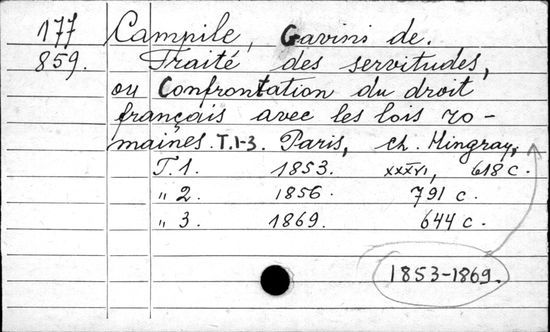 177 Campile, Gavini de.
859. Traité des servitudes,
ou Confrontation du droit
français avec les lois ro-
maines. T.1-3. Paris, Ch. Hingray,
T. 1. 1853. XXXVI, 618 c.
" 2. 1856. 791 c.
" 3. 1869. 644 c.
1853-1869.